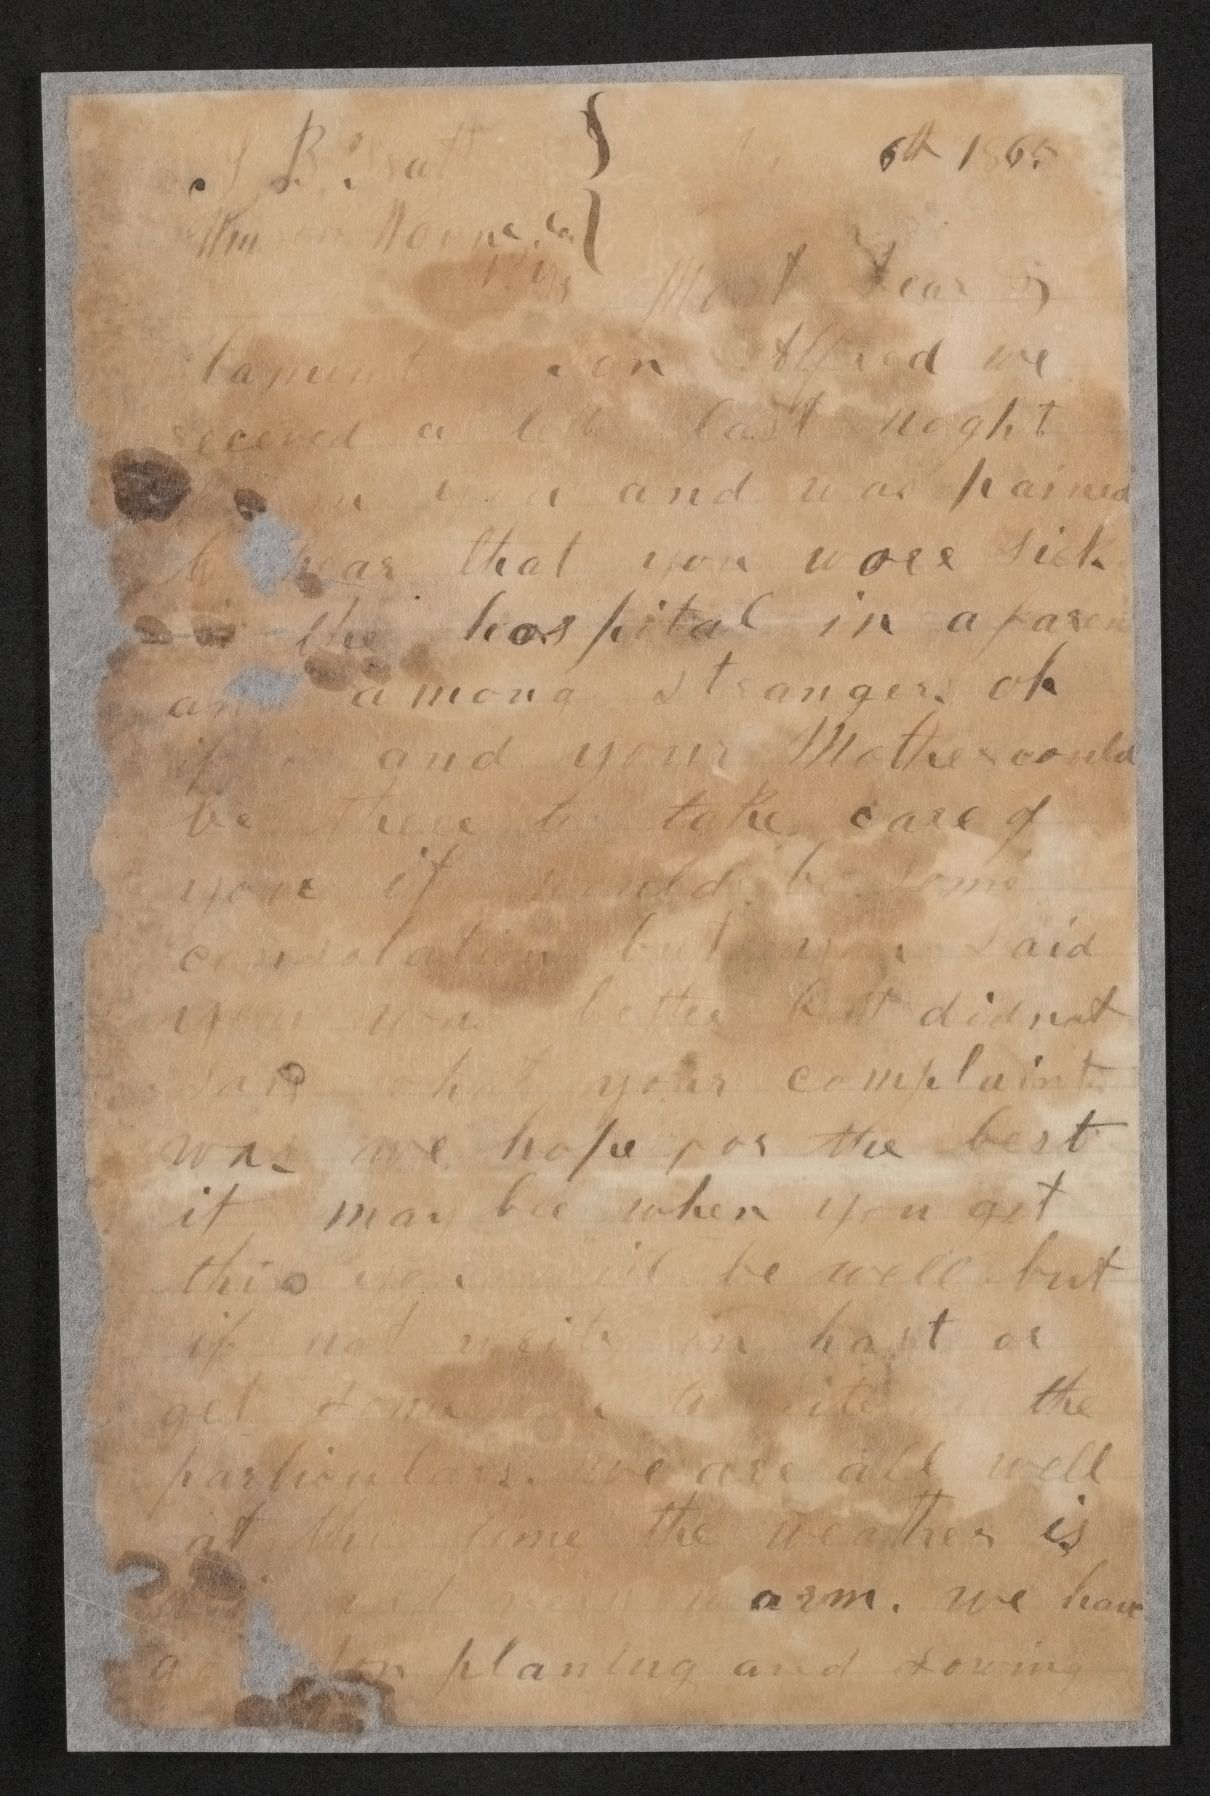 J B 6th 1865
Most Dear &
son Alfred we
receved a last noght
you and was pained
hear that you wore sick
the hospital in a
among strangers oh
if and your Mother could
be there to take care of
you it would be some
consolation but you said
you was better but didnot
say what your complaint
was we hope for the best
it may bee when you get
this you will be well but
if not write in hast or
get some to the
particulars. we are all well
at this time the weather is
and warm. we have
planting and sowing